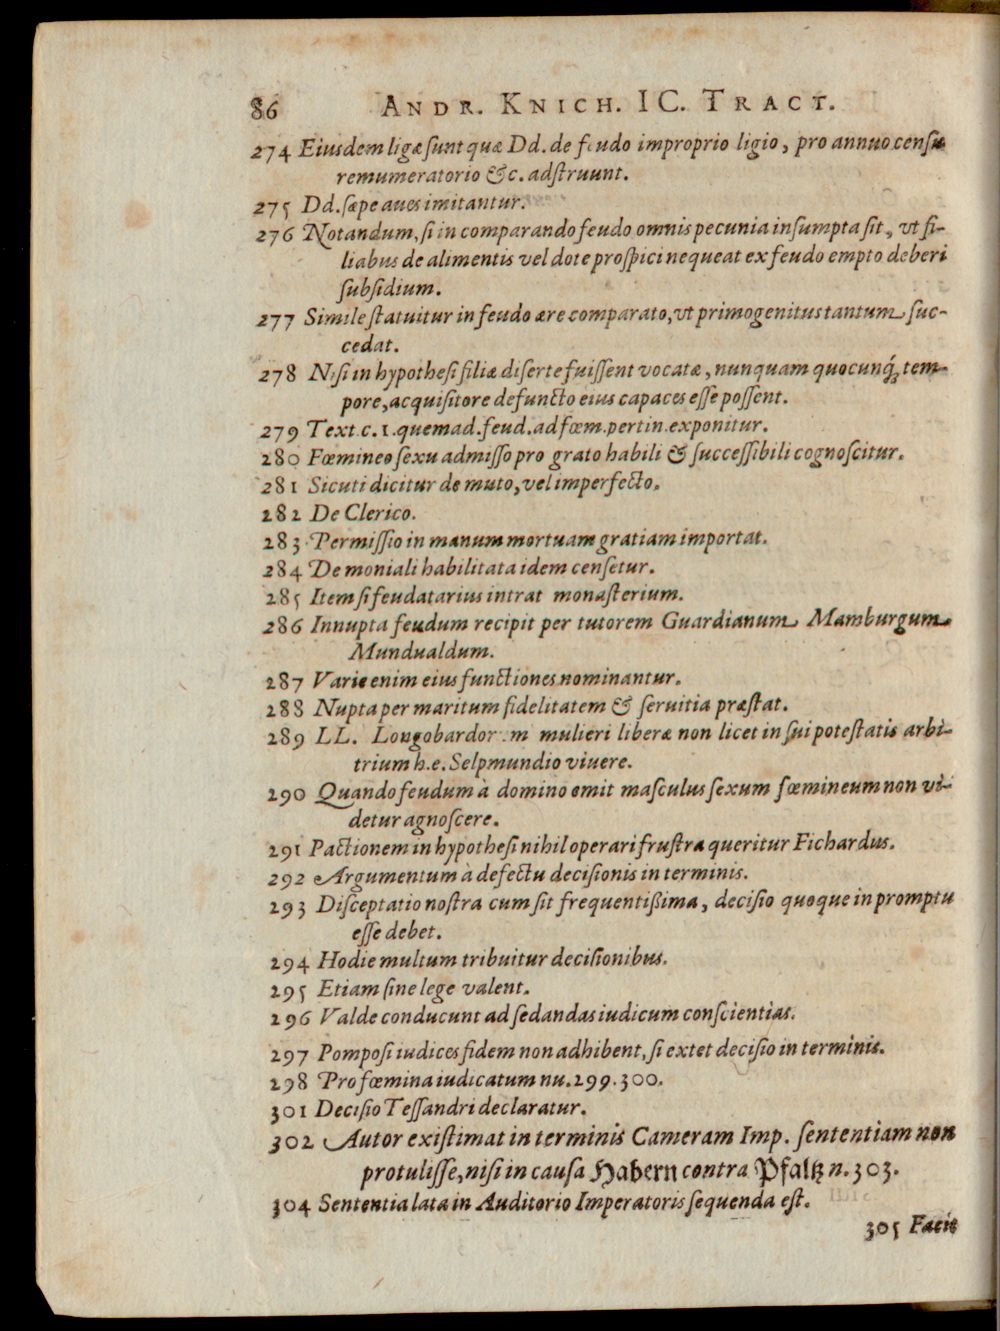 86 ANDR. KNICH. IC. TRACT.
274 Eiusdem ligæ sunt quæ Dd. de feudo improprio ligio, pro annuo censu
remumeratorio &c. adstruunt.
275 Dd. sæpe aues imitantur.
276 Notandum, si in comparando feudo omnis pecunia insumpta sit, vt fi-
liabus de alimentis vel dote prospici nequeat ex feudo empto deberi
subsidium.
277 Simile statuitur in feudo ære comparato, vt primogenitus tantum suc-
cedat.
278 Nisi in hypothesi filiæ diserte fuissent vocatæ, nunquam quocunq́; tem-
pore, acquisitore defuncto eius capaces esse possent.
279 Text. c. 1. quemad. feud. ad fœm. pertin. exponitur.
280 Fœmineo sexu admisso pro grato habili & successibili cognoscitur.
281 Sicuti dicitur de muto, vel imperfecto.
282 De Clerico.
283 Permissio in manum mortuam gratiam importat.
284 De moniali habilitata idem censetur.
285 Item si feudatarius intrat monasterium.
286 Innupta feudum recipit per tutorem Guardianum Mamburgum
Mundualdum.
287 Varie enim eius functiones nominantur.
288 Nupta per maritum fidelitatem & seruitia præstat.
289 LL. Longobardor.m mulieri liberæ non licet in sui potestatis arbi-
trium h.e. Selpmundio viuere.
290 Quando feudum à domino emit masculus sexum fœmineum non vi-
detur agnoscere.
291 Pactionem in hypothesi nihil operari frustra queritur Fichardus.
292 Argumentum à defectu decisionis in terminis.
293 Disceptatio nostra cum sit frequentißima, decisio quoque in promptu
esse debet.
294 Hodie multum tribuitur decisionibus.
295 Etiam sine lege valent.
296 Valde conducunt ad sedandas iudicum conscientias.
297 Pomposi iudices fidem non adhibent, si extet decisio in terminis.
298 Pro fœmina iudicatum nu. 299. 300.
301 Decisio Tessandri declaratur.
302 Autor existimat in terminis Cameram Imp. sententiam non
protulisse, nisi in causa Habern contra Pfaltz n. 303.
304 Sententia lata in Auditorio Imperatoris sequenda est.
305 Facit